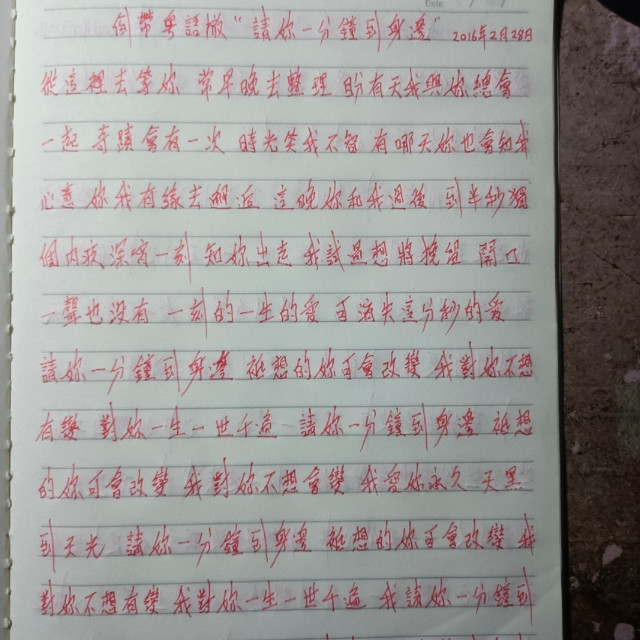 倒帶粵語版“請妳一分鐘到身邊” 2016年2月28日
從這裡去等妳 常早晚去整理 盼有天我與妳總會
一起 奇蹟會有一次 時光笑我不智 有哪天妳也會知我
心意 妳我有緣去邂逅 這晚妳和我過後 到半秒
個內夜深唯一刻 知妳出走 我試過想將挽留 開口
一聲也沒有 一刻的一生的愛 可消失這分秒的愛
請妳一分鐘到身邊 祗想的妳可會改變 我對妳不想
有變 對妳一生一世千遍 請妳一分鐘到身邊 祗想
的妳可會改變 我對妳不想會變 我愛妳永久 天黑
到天光 請妳一分鐘到身邊 祗想的妳可會改變 我
對妳不想有變 我對妳一生一世千遍 我請妳一分鐘到